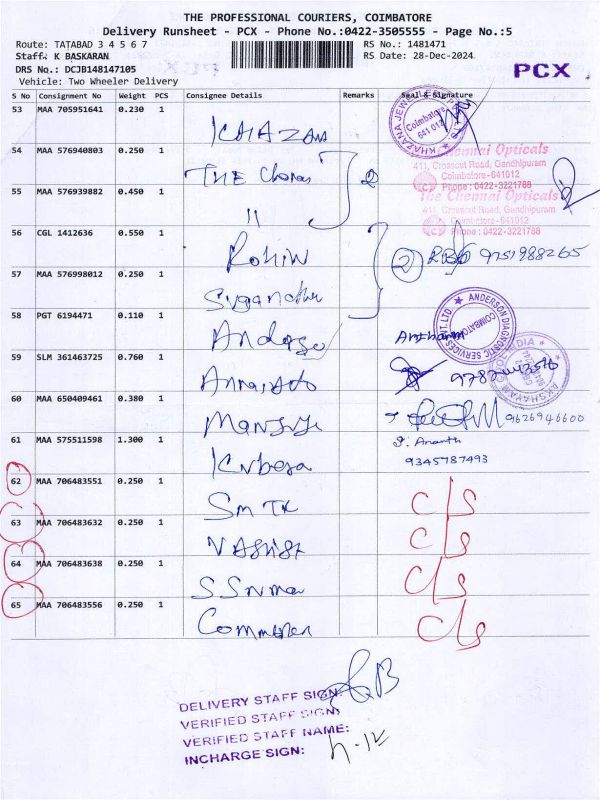 THE PROFESSIONAL COURIERS, COIMBATORE
Delivery Runsheet - PCX - Phone No.:0422-3505555 - Page No.:5
Route: TATABAD 3 4 5 6 7 RS No.: 1481471
Staff: K BASKARAN RS Date: 28-Dec-2024
DRS No.: DCJB148147105 PCX
Vehicle: Two Wheeler Delivery
S No Consignment No Weight PCS Consignee Details Remarks Seal & Signature
53 MAA 705951641 0.230 1
KHAZANA JEWELLERY
Coimbatore
641 012
KHAZANA
54 MAA 576940803 0.250 1
The Chennai Opticals
411, Crosscut Road, Gandhipuram
Coimbatore-641012
Phone : 0422-3221788
THE Chennai 2
55 MAA 576939882 0.450 1
The Chennai Opticals
411, Crosscut Road, Gandhipuram
Coimbatore-641012
Phone : 0422-3221788
"
56 CGL 1412636 0.550 1
Rohin 2 9751988265
57 MAA 576998012 0.250 1
58 PGT 6194471 0.110 1
ANDERSON DIAGNOSTIC SERVICES PVT. LTD
COIMBATORE
59 SLM 361463725 0.760 1
60 MAA 650409461 0.380 1
9626946600
61 MAA 575511598 1.300 1
Ananth
9345787493
Kubera
62 MAA 706483551 0.250 1
c/s
SMTK
63 MAA 706483632 0.250 1
c/s
64 MAA 706483638 0.250 1
c/s
65 MAA 706483556 0.250 1
c/s
DELIVERY STAFF SIGN:
VERIFIED STAFF SIGN:
VERIFIED STAFF NAME:
INCHARGE SIGN: